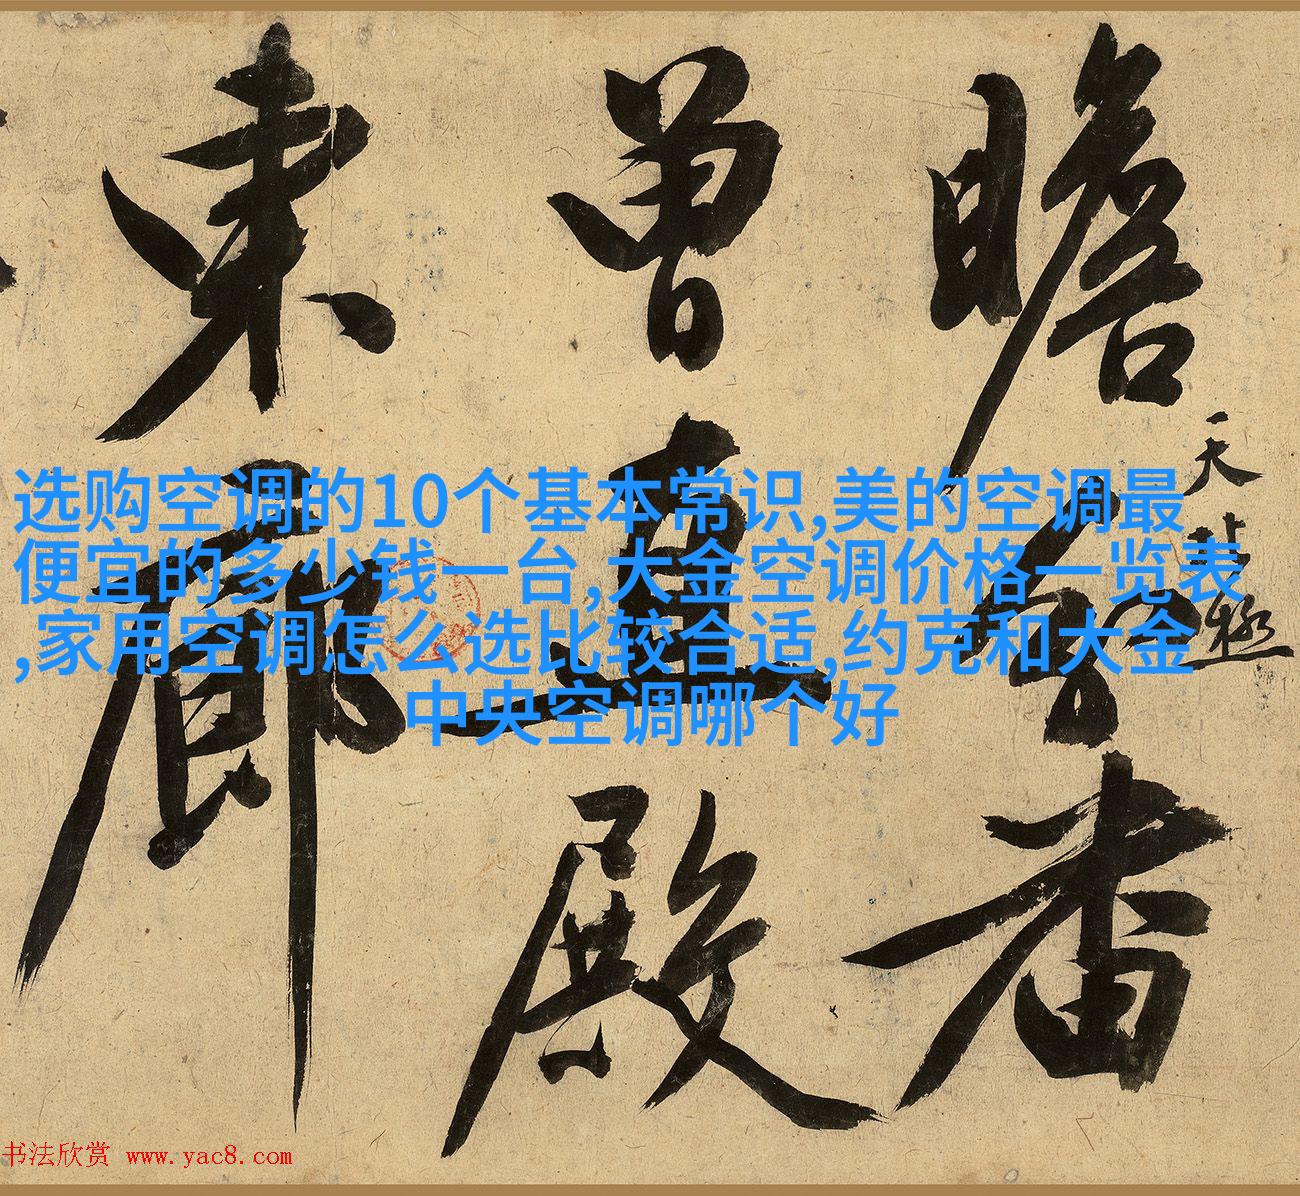 选购空调的10个基本常识,美的空调最
便宜的多少钱一台,大金空调价格一览表
,家用空调怎么选比较合适,约克和大金
中央空调哪个好
瞻
曾
殿
東廊
书法欣赏 www.yac8.com